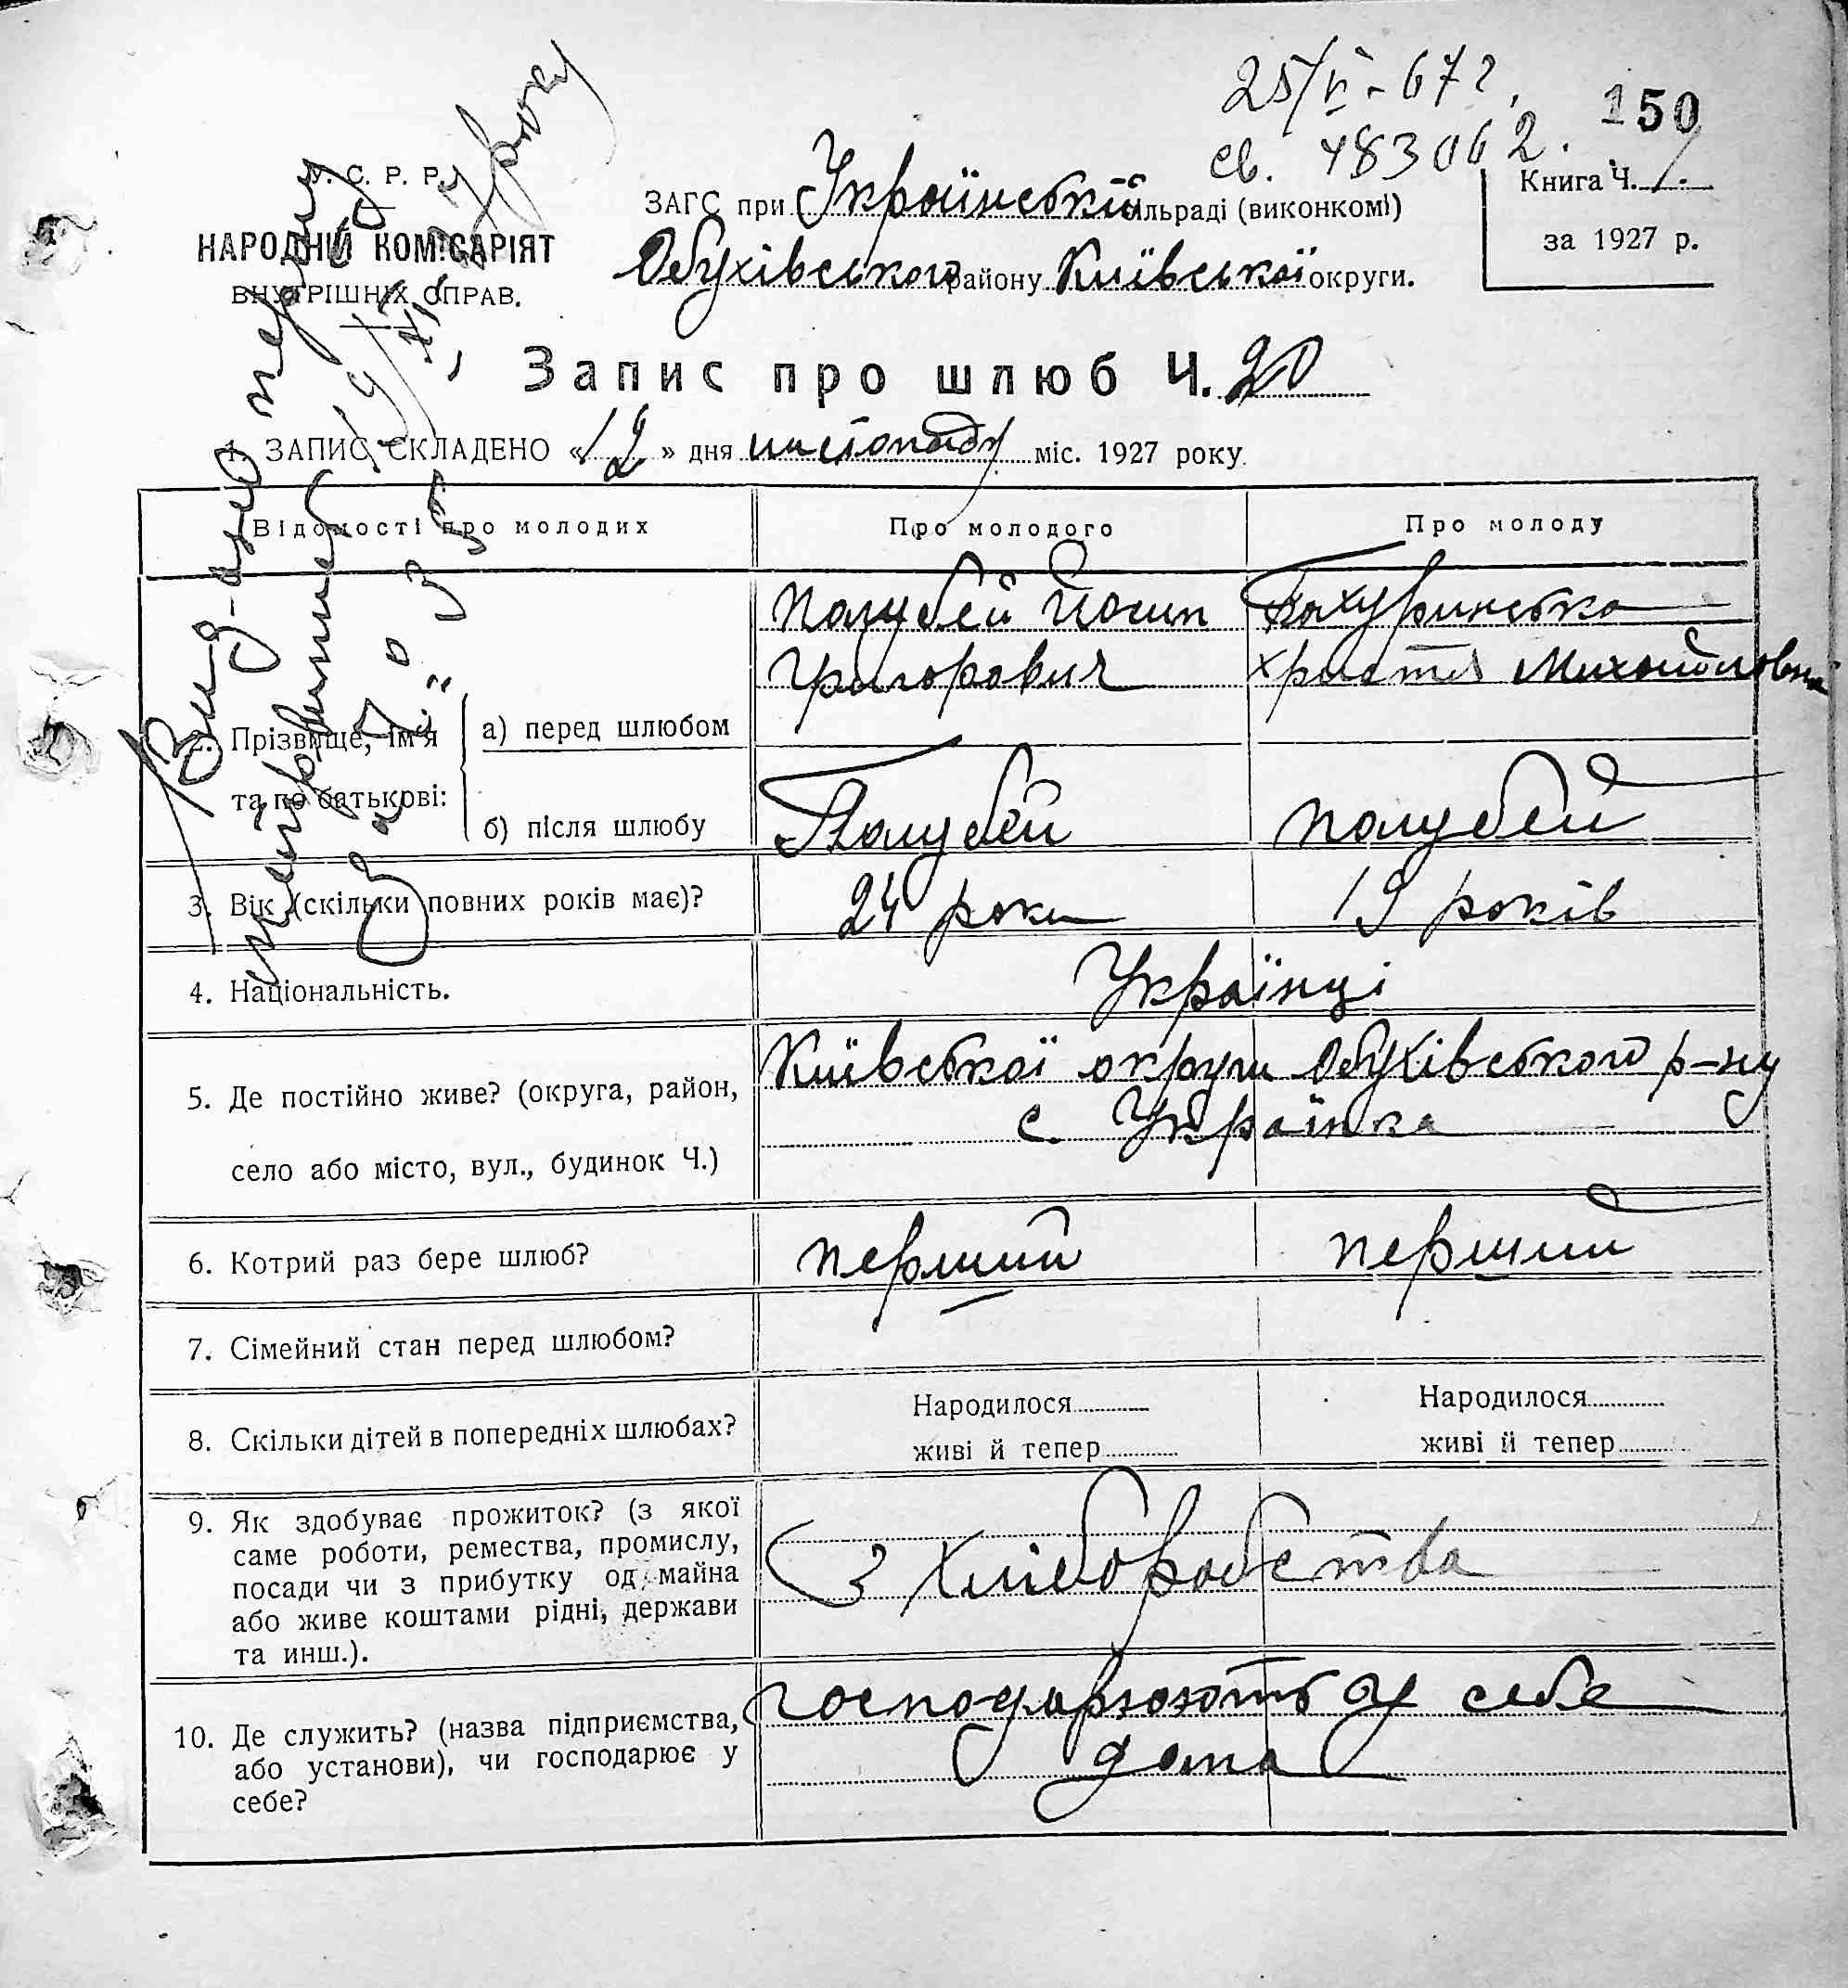 25/VI-67 г.
св. 483062.
150
У. С. Р. Р.
НАРОДНІЙ КОМІСАРІЯТ
ВНУТРІШНІХ СПРАВ.
ЗАГС при Українській сільраді (виконкомі)
Обухівського району Київської округи.
Книга Ч. 1.
за 1927 р.
Запис про шлюб Ч. 20
1. ЗАПИС СКЛАДЕНО «12» дня листопаду міс. 1927 року.
Відомості про молодих
Про молодого
Про молоду
2. Прізвище, ім'я та по батькові:
а) перед шлюбом
Полубей Йосип
Григорович
Христя Михайловна
б) після шлюбу
Полубей
Полубей
3. Вік (скільки повних років має)?
24 роки
19 років
4. Національність.
Українці
5. Де постійно живе? (округа, район,
село або місто, вул., будинок Ч.)
Київської округи Обухівського р-ну
с. Українка
6. Котрий раз бере шлюб?
перший
перший
7. Сімейний стан перед шлюбом?
8. Скільки дітей в попередніх шлюбах?
Народилося
живі й тепер
Народилося
живі й тепер
9. Як здобуває прожиток? (з якої
саме роботи, ремества, промислу,
посади чи з прибутку од майна
або живе коштами рідні, держави
та инш.).
З хліборобства
10. Де служить? (назва підприємства,
або установи), чи господарює у
себе?
господарюють у себе
дома